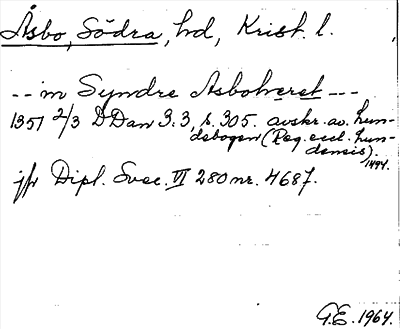 Åsbo, Södra, hd, Krist. l.
-- in Syndre Asbohæret ---
1351 2/3 DDan 3.3, s. 305. avskr. av. Lun-
debogen (Reg. eccl. Lun-
densis).
1494.
jfr Dipl. Svec. VI 280 nr. 4687.
G.E. 1964.